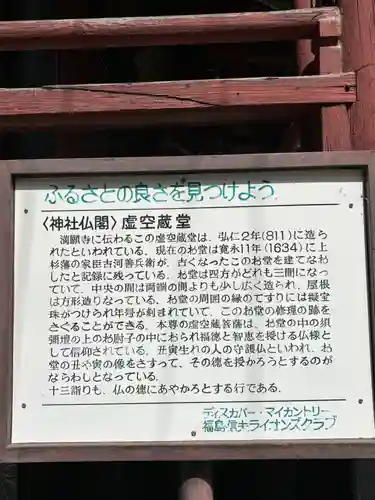 ふるさとの良さを見つけよう
〈神社仏閣〉虚空蔵堂
満願寺に伝わるこの虚空蔵堂は、弘仁2年(811)に造ら
れたといわれている。現在のお堂は寛永11年(1634)に上
杉藩の家臣古河善兵衛が、古くなったこのお堂を建てなお
したと記録に残っている。お堂は四方がどれも三間になっ
ていて、中央の間は両端の間よりも少し広く造られ、屋根
は方形造りなっている。お堂の周囲の縁のてすりには擬宝
珠がつけられ年号が刻まれていて、このお堂の修理の跡を
さぐることができる。本尊の虚空蔵菩薩は、お堂の中の須
弥壇の上のお厨子の中におられ福徳と智恵を授ける仏様と
して信仰されている。丑寅生れの人の守護仏といわれ、お
堂の丑や寅の像をさすって、その徳を授かろうとするのが
ならわしとなっている。
十三詣りも、仏の徳にあやかろうとする行である。
ディスカバー・マイカントリー
福島信夫ライオンズクラブ